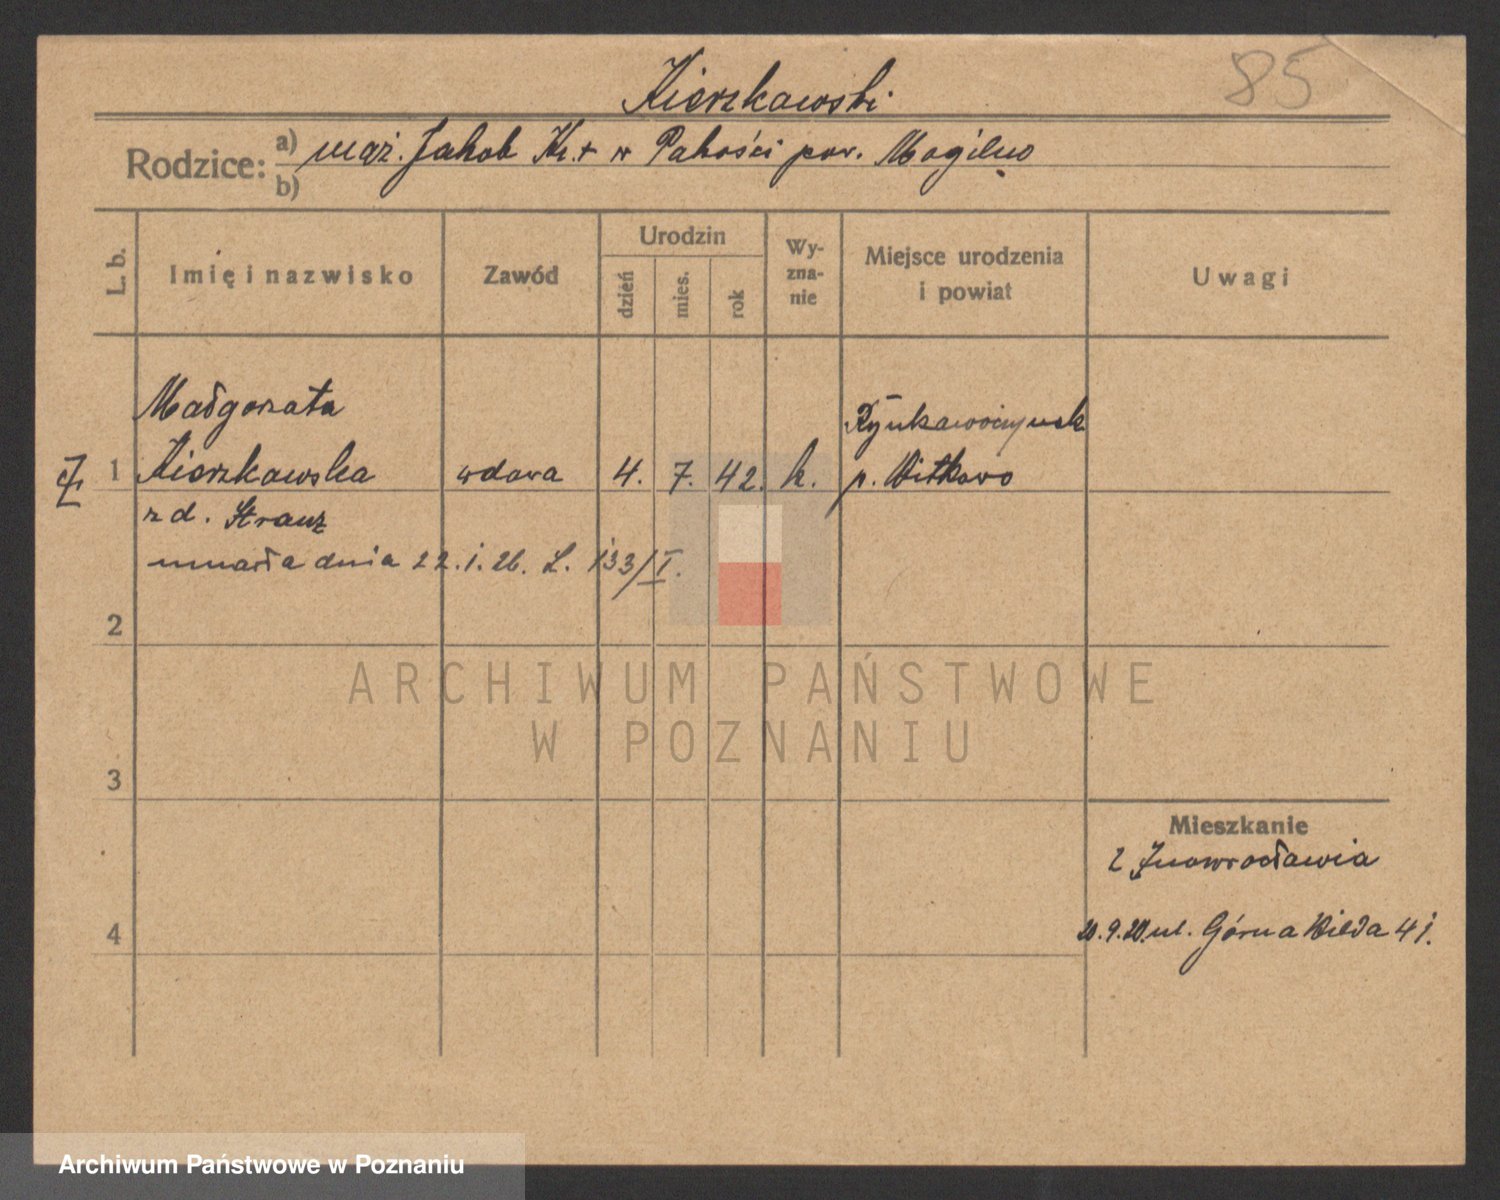 85
Kierzkawski
Rodzice: a) mąż. Jakob Ki. + w Pakości pow. Mogilno
b)
L. b.
Imię i nazwisko
Zawód
Urodzin
dzień
mies.
rok
Wy-
zna-
nie
Miejsce urodzenia
i powiat
Uwagi
Małgorzata
1 Kierzkawska wdowa 4. 7. 42. k. p. Witkowo
zd. Stranz
umarła dnia 22.1.26. L. 133/I.
2
ARCHIWUM PAŃSTWOWE
W POZNANIU
3
Mieszkanie
z Inowrocławia
4
20.9.20. ul. Górna Wilda 41.
Archiwum Państwowe w Poznaniu